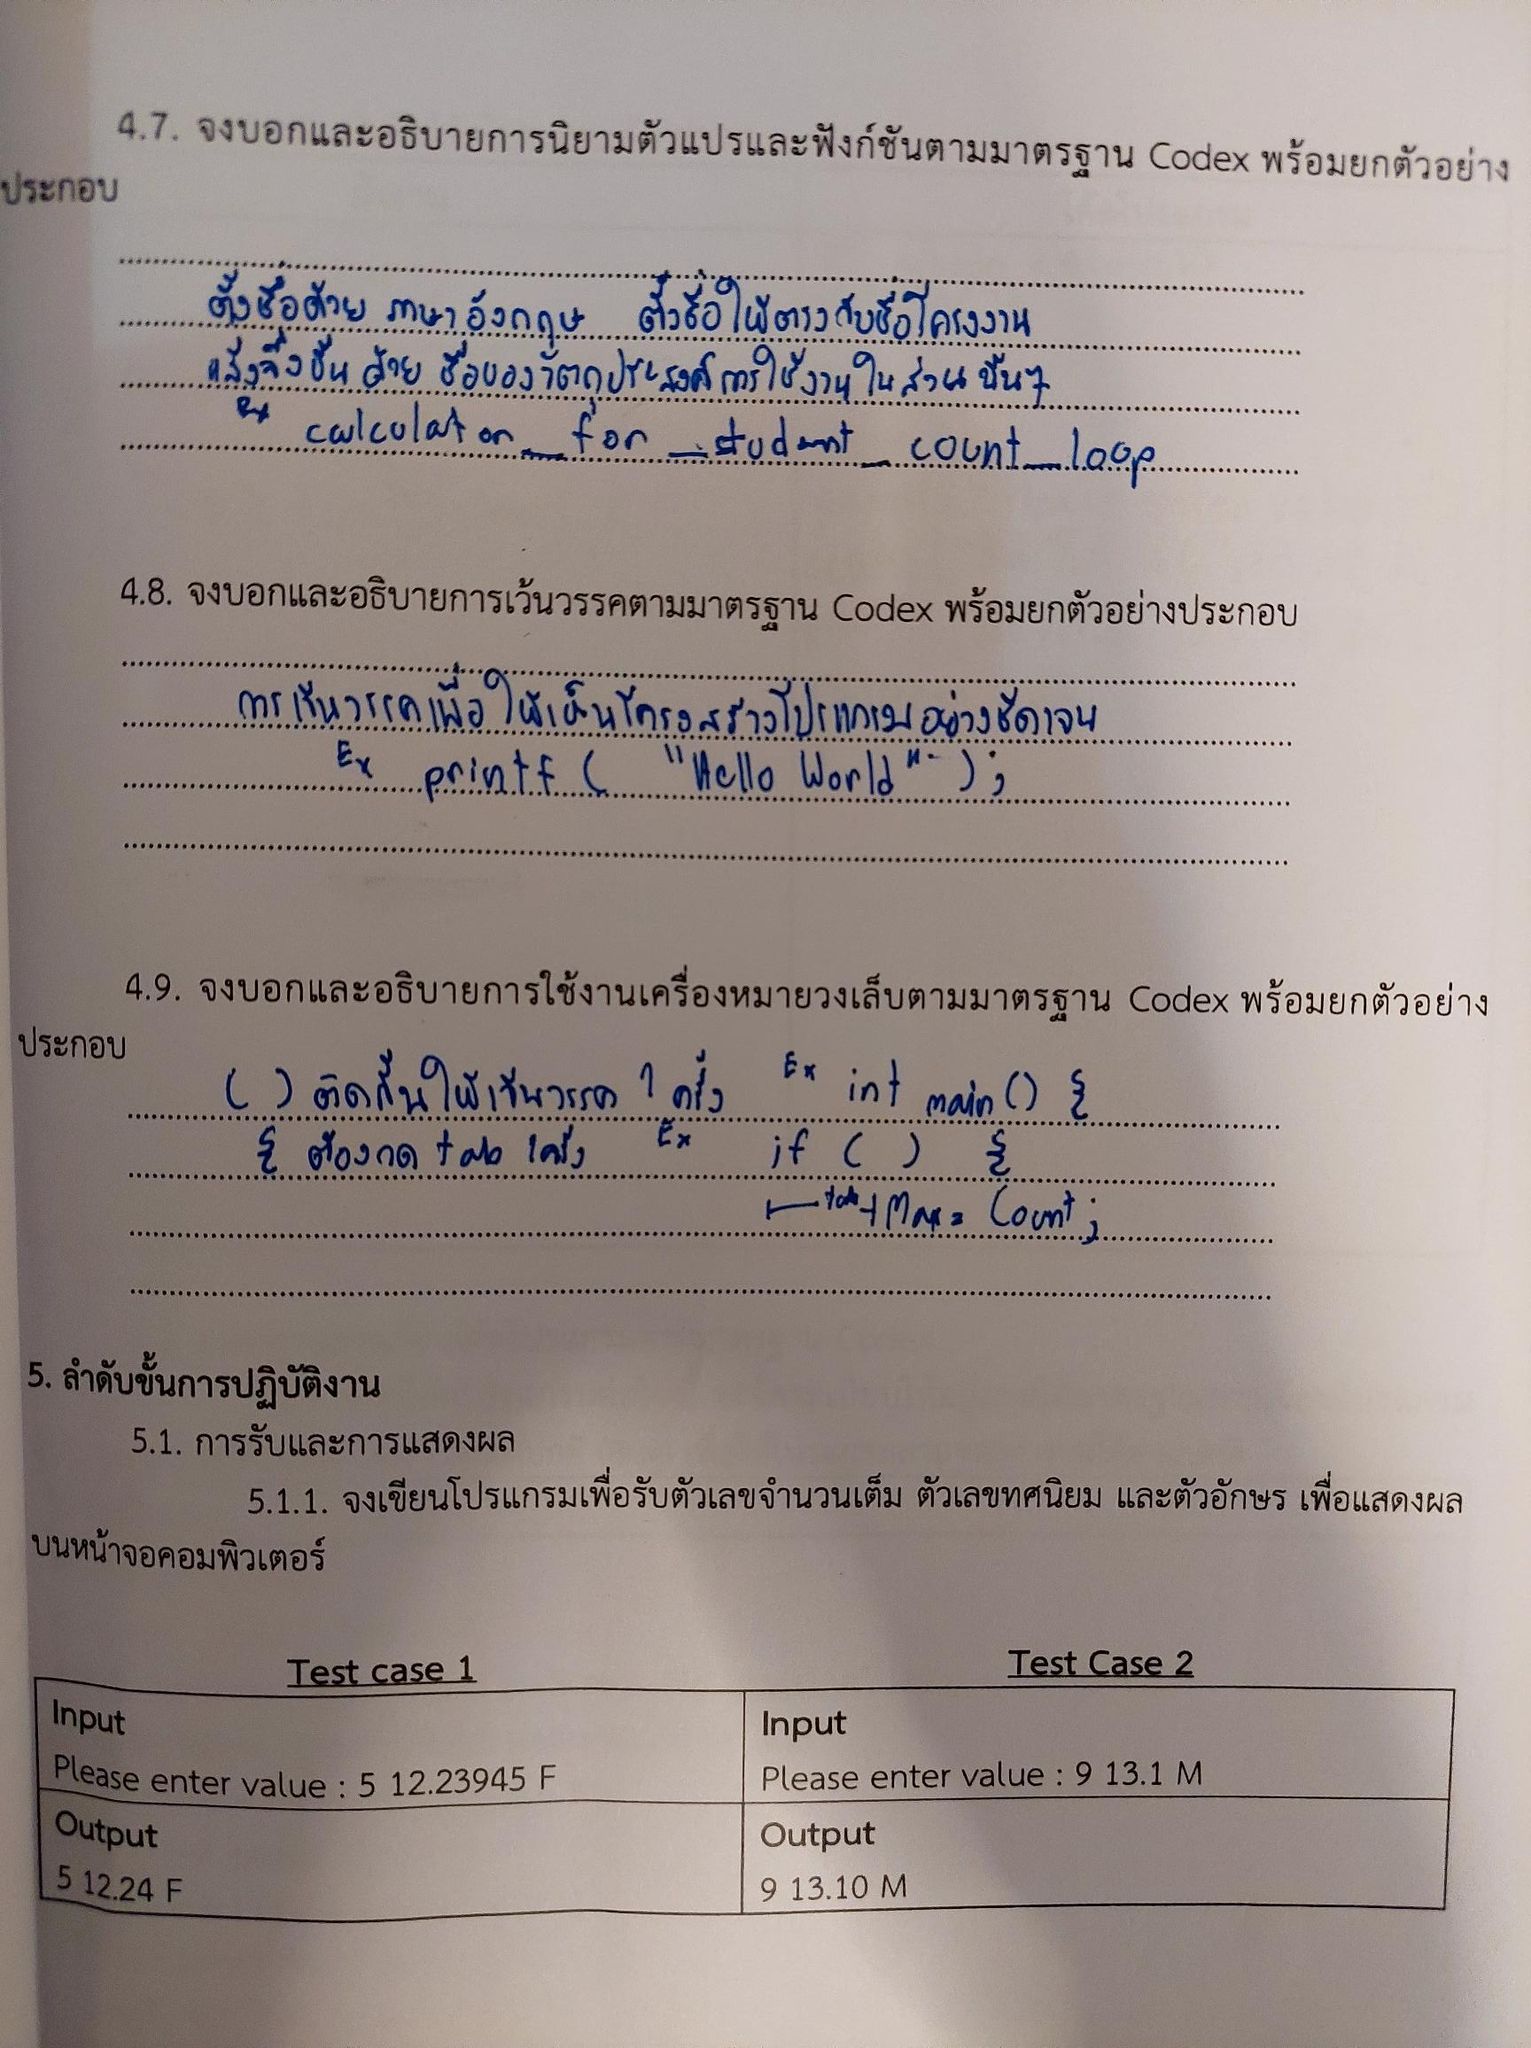 4.7. จงบอกและอธิบายการนิยามตัวแปรและฟังก์ชันตามมาตรฐาน Codex พร้อมยกตัวอย่าง
ประกอบ
ตั้งชื่อด้วย ภาษาอังกฤษ ตั้งชื่อให้ตรงกับชื่อโครงงาน
แล้วจึงขึ้นด้วย ชื่อของวัตถุประสงค์การใช้งานในส่วนนั้นๆ
Ex calculator_for_student_count_loop
4.8. จงบอกและอธิบายการเว้นวรรคตามมาตรฐาน Codex พร้อมยกตัวอย่างประกอบ
การเว้นวรรคเพื่อให้เห็นโครงสร้างโปรแกรมอย่างชัดเจน
Ex printf( "Hello World" );
4.9. จงบอกและอธิบายการใช้งานเครื่องหมายวงเล็บตามมาตรฐาน Codex พร้อมยกตัวอย่าง
ประกอบ
( ) ติดกันให้เว้นวรรค 1 ครั้ง Ex int main() {
{ ต้องกด tab 1 ครั้ง Ex if ( ) {
tab Max = Count;
5. ลำดับขั้นการปฏิบัติงาน
5.1. การรับและการแสดงผล
5.1.1. จงเขียนโปรแกรมเพื่อรับตัวเลขจำนวนเต็ม ตัวเลขทศนิยม และตัวอักษร เพื่อแสดงผล
บนหน้าจอคอมพิวเตอร์
Test case 1
Input
Please enter value : 5 12.23945 F
Output
5 12.24 F
Test Case 2
Input
Please enter value : 9 13.1 M
Output
9 13.10 M